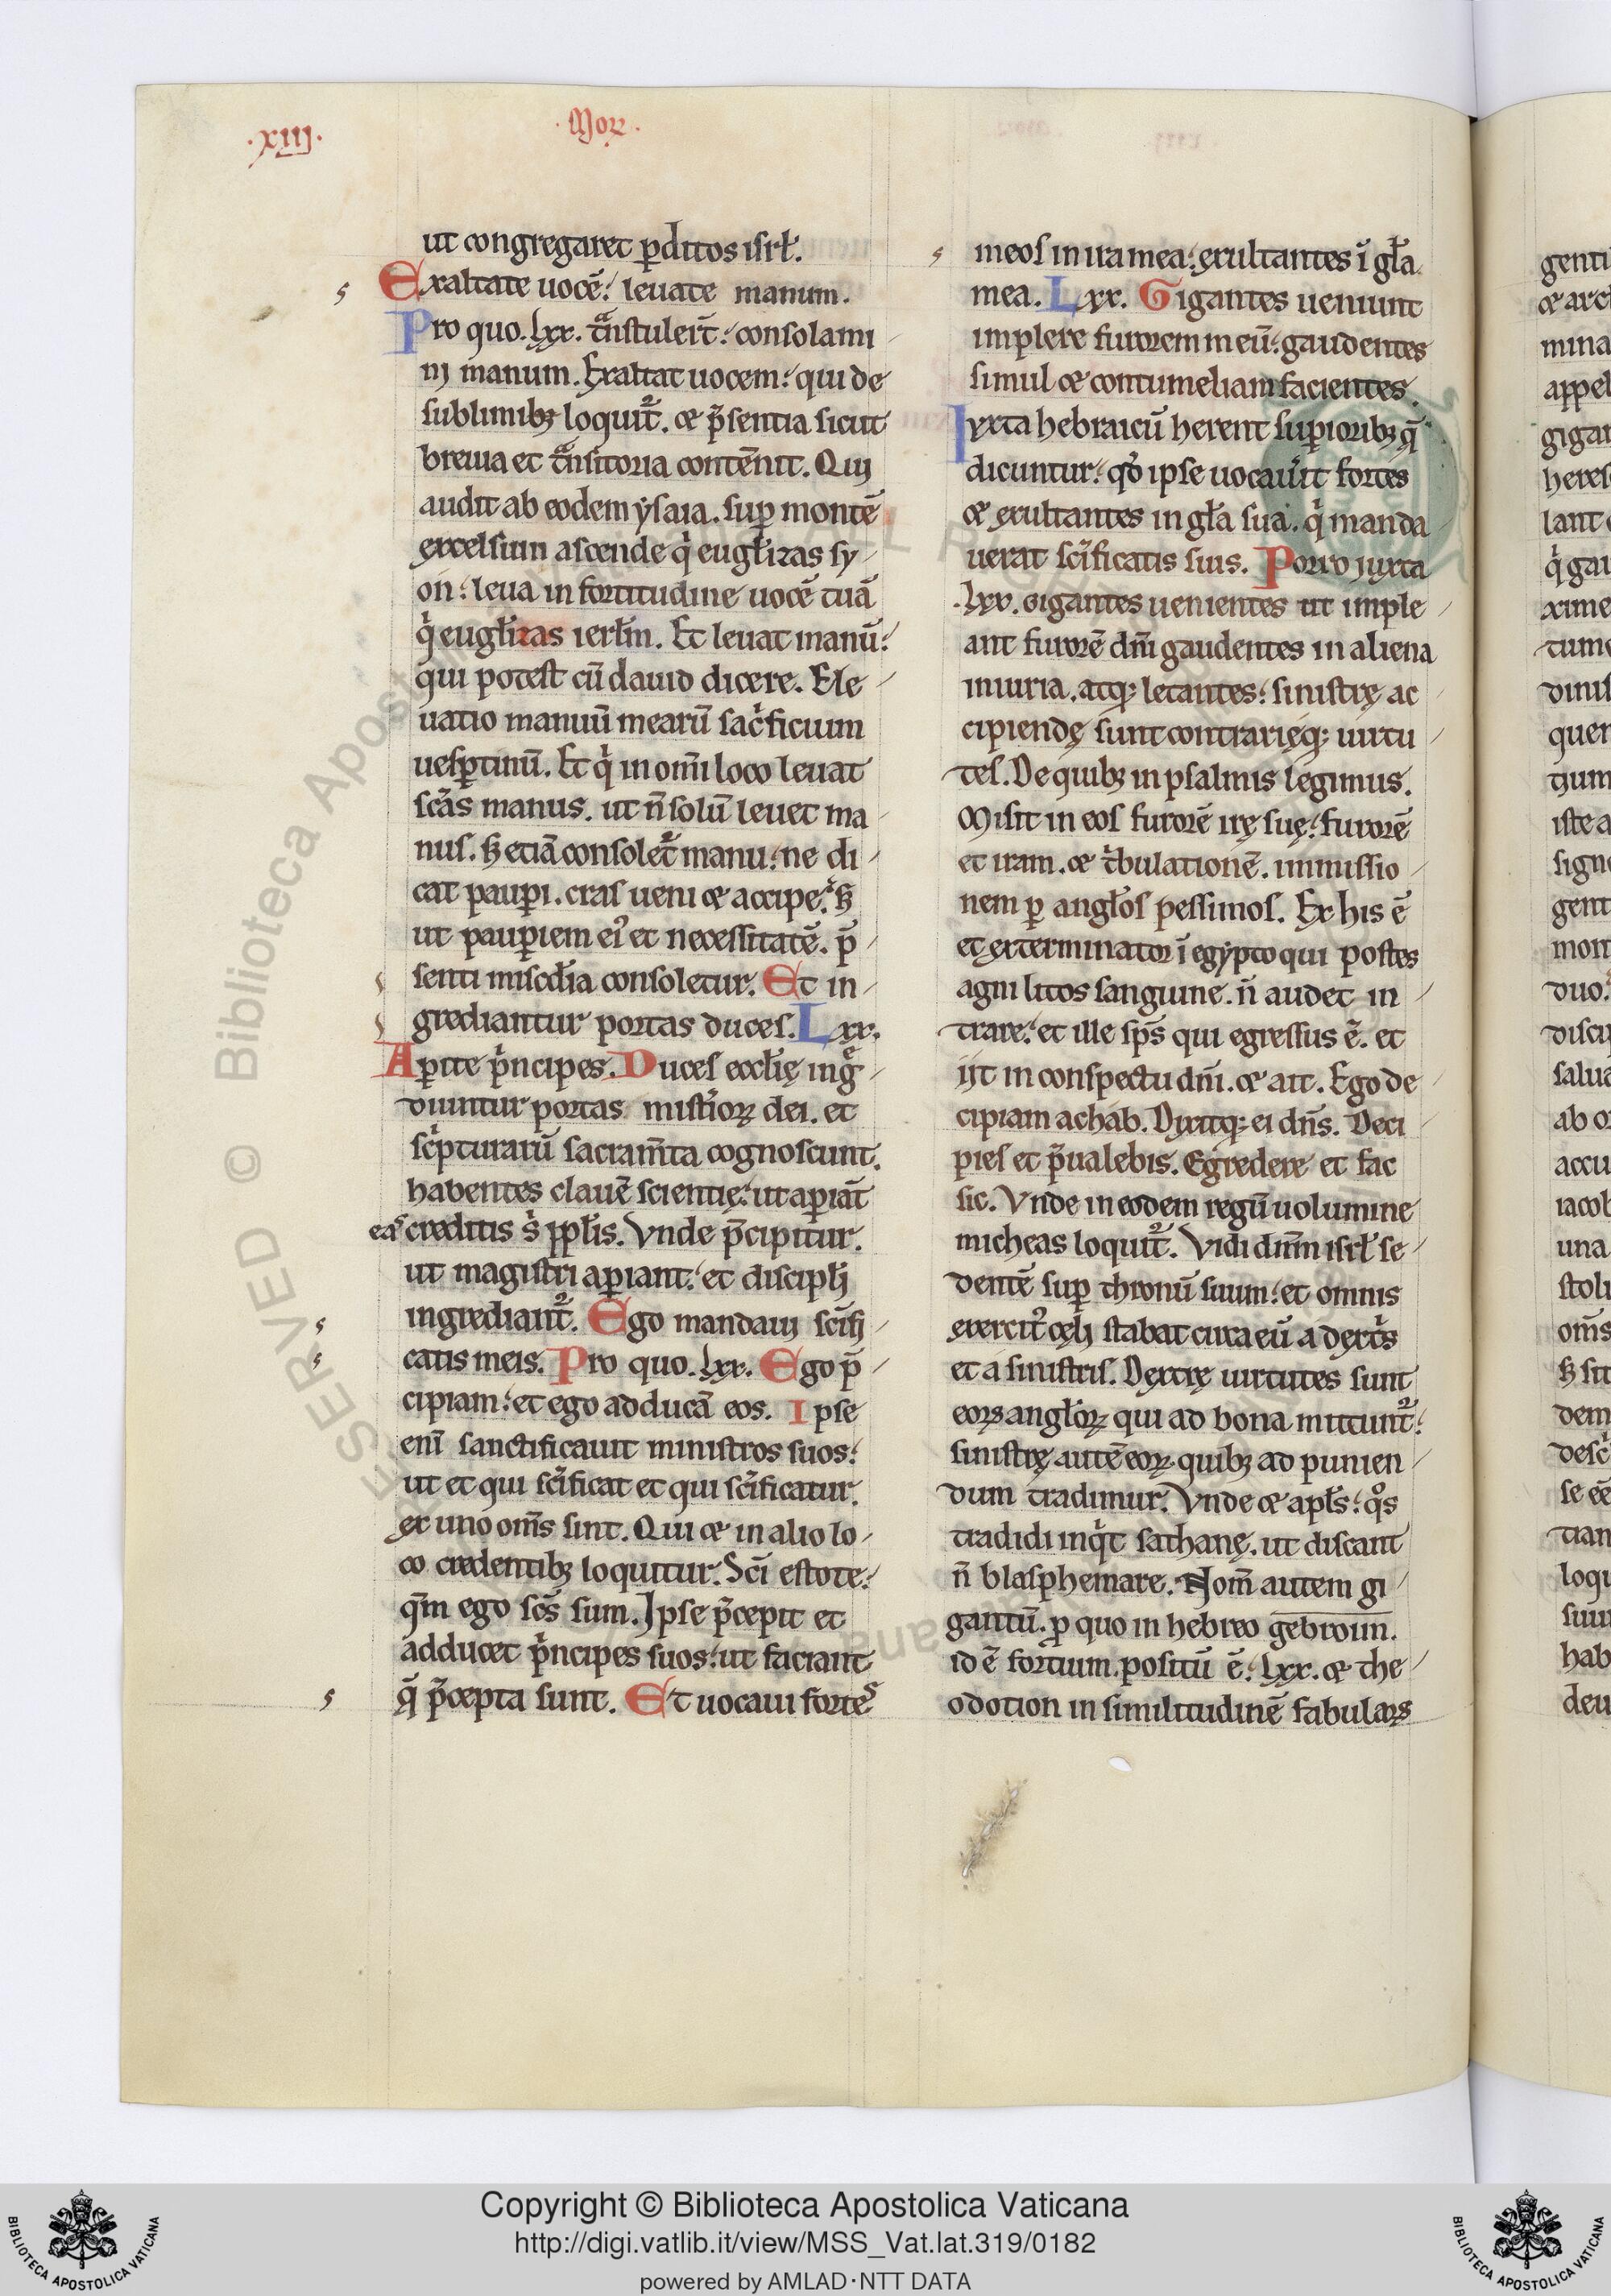 ·xiij·
·Morꝛ·
ut congregaret ꝑditos isrl̄.
Exaltate uocē: leuate manum.
Pro quo. lxx. tͣnstulerūt: consolami
nj manum. Exaltat uocem: qui de
sublimibꝫ loquit᷑. ⁊ p̄sentia sicut
breuia et tͣnsitoria contēnit. Qui
audit ab eodem ẏsaia. suꝑ montē
excelsum ascende qͥ eugl̄izas sy
on: leua in fortitudine uocē tuā
qͥ eugl̄izas ierl̄m. Et leuat manū:
qui potest cū dauid dicere. Ele
uatio manuū mearū sacͥficium
uesꝑtinū. Et qͥ in om̄i loco leuat
scās manus. ut n̄ solū leuet ma
nus. sꝫ etiā consolet᷑ manu: ne di
cat pauꝑi. cras ueni ⁊ accipe: sꝫ
ut pauꝑiem eiꝰ et necessitatē. p̄
senti misc̄dia consoletur. Et in
grediantur portas duces. Lxx.
Aꝑite pͥncipes. Duces eccl̄ię ingͤ
diuntur portas mist̓ioꝝ dei. et
scͥpturarū sacram̄ta cognoscunt.
habentes clauē scientię: ut aꝑiāt
eas creditis sͥ ppl̄is. Vnde p̄cipitur.
ut magistri aꝑiant: et discipl̄i
ingrediant᷑. Ego mandaui sc̄ifi
catis meis. Pro quo. lxx. Ego p̄
cipiam: et ego adducā eos. Ipse
eni̅ sanctificauit ministros suos:
ut et qui sc̄ificat et qui sc̄ificatur.
ex uno om̄s sint. Qui ⁊ in alio lo
co credentibꝫ loquitur. Sc̄i estote:
qm̄ ego sc̄s sum. Ipse p̄cepit et
adducet pͥncipes suos: ut faciant
q̄ p̄cepta sunt. Et uocaui fortes
meos in ira mea: exultantes ī gl̄a
mea. Lxx. Gigantes ueniunt
implere furorem meū: gaudentes
simul ⁊ contumeliam facientes.
Iuxta hebraicū herent suꝑioribꝫ q̄
dicuntur: qͦd ipse uocau̓it fortes
⁊ exultantes in gl̄a sua. qͥ manda
uerat sc̄ificatis suis. Porro juxta
.lxx. gigantes uenientes ut imple
ant furorē dn̄i gaudentes in aliena
iniuria. atqꝫ letantes: sinistrę ac
cipiendę sunt contrarięqꝫ uirtu
tes. De quibꝫ in psalmis legimus.
Misit in eos furorē irę suę: furorē
et iram. ⁊ tͥbulationē. immissio
nem ꝑ angl̄os pessimos. Ex his ē
et exterminator ī egypto qui postes
agni litos sanguine. n̄ audet in
trare: et ille sp̄s qui egressus ē. et
ijt in conspectu dn̄i. ⁊ ait. Ego de
cipiam achab. Dixitqꝫ ei dn̄s. Deci
pies et p̄ualebis. Egredere et fac
sic. Vnde in eodem regū uolumine
micheas loquit᷑. Vidi dn̄m isrl̄ se
dentē suꝑ thronū suum: et omnis
exercitꝰ cęli stabat circa eū a dextͥs
et a sinistris. Dextrę uirtutes sunt
eoꝝ angl̄oꝝ qui ad bona mittunt᷑:
sinistrę autē eoꝝ quibꝫ ad punien
dum tradimur. Vnde ⁊ apl̄s: qͦs
tradidi inqͥt sathanę. ut discant
n̄ blasphemare. Nom̄ autem gi
gantū. ꝓ quo in hebreo gebroim.
id ē fortium. positū ē: lxx. ⁊ the
odotion in similitudinē fabulaꝝ
Copyright © Biblioteca Apostolica Vaticana
http://digi.vatlib.it/view/MSS_Vat.lat.319/0182
powered by AMLAD·NTT DATA
BIBLIOTECA APOSTOLICA VATICANA
BIBLIOTECA APOSTOLICA VATICANA